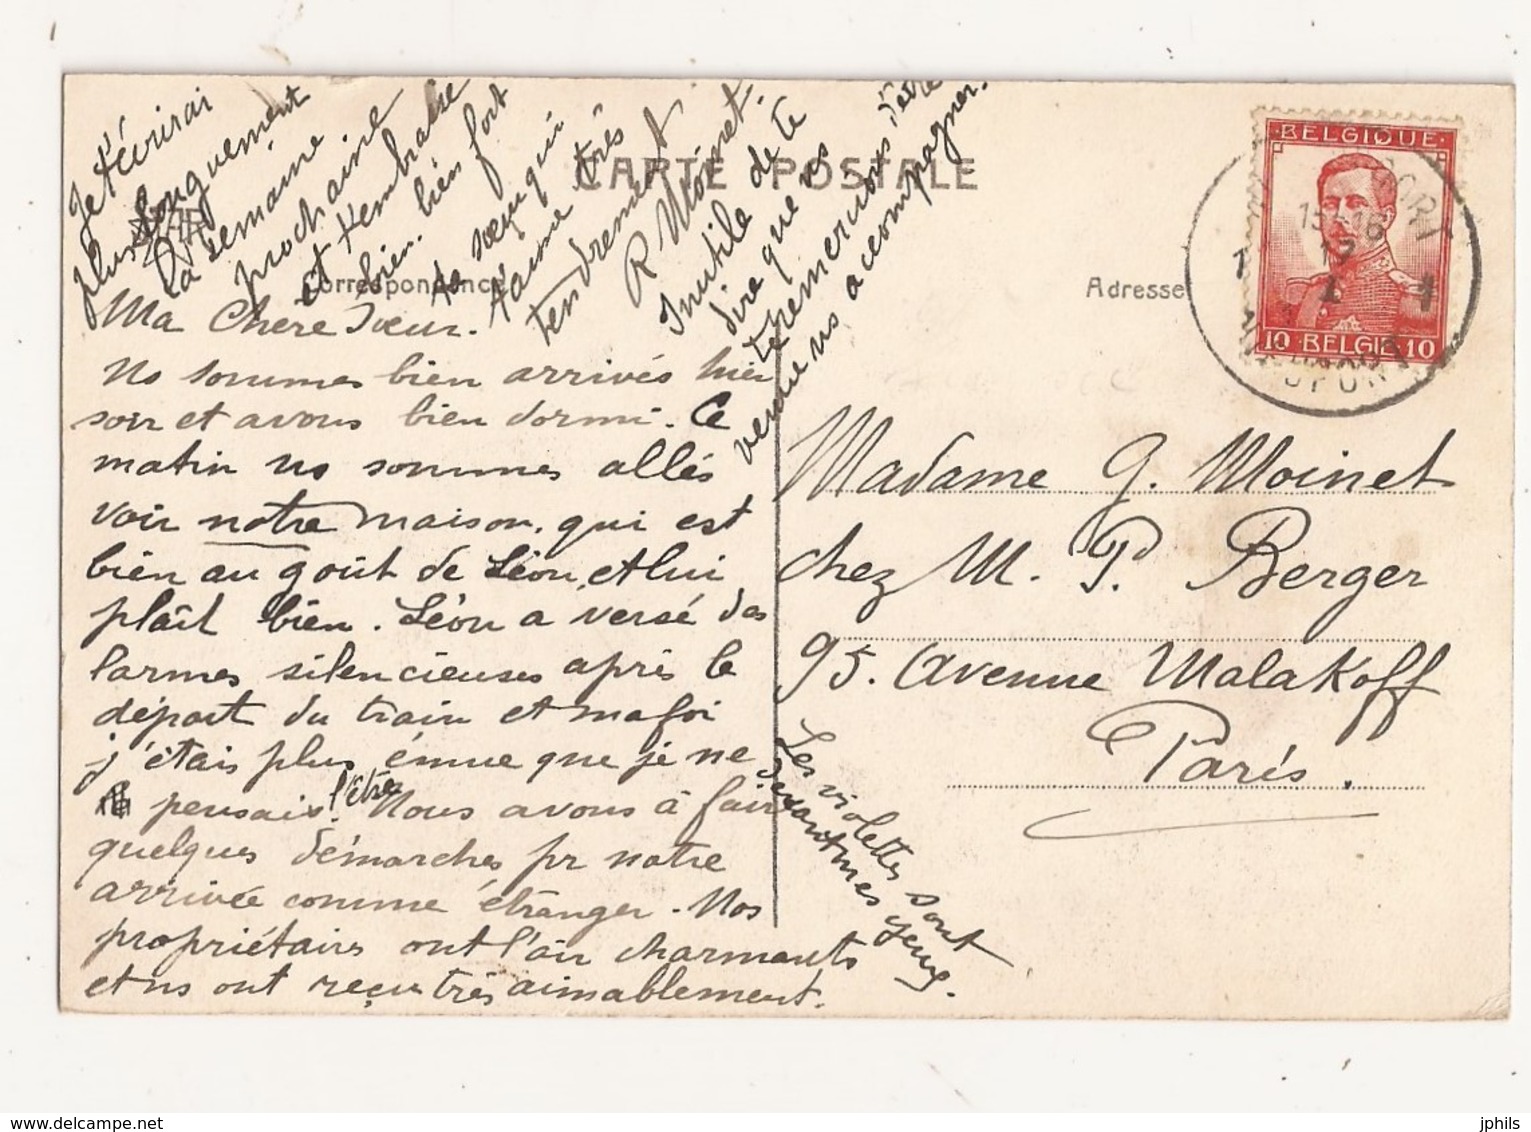 CARTE POSTALE
Correspondance
Adresse
BELGIQUE
10 BELGIE 10
Ma Chère Sœur.
Ns sommes bien arrivés hier
soir et avons bien dormi. Ce
matin ns sommes allés
voir notre maison, qui est
bien au goût de Léon, et lui
plaît bien. Léon a versé des
larmes silencieuses après le
départ du train et ma foi
j'étais plus émue que je ne
pensais l'être. Nous avons à faire
quelques démarches pr notre
arrivée comme étranger. Nos
propriétaires ont l'air charmants
et ns ont reçus très aimablement.
Je t'écrirai
plus longuement
la semaine
prochaine
et t'embrasse
bien, bien fort
ta sœur qui
t'aime très
tendrement
R Moinet.
Inutile de te
dire que ns
te remercions d'être
venue ns accompagner.
Les violettes sont
devant mes yeux.
Madame G. Moinet
chez M. P. Berger
95. Avenue Malakoff
Paris.
jphils